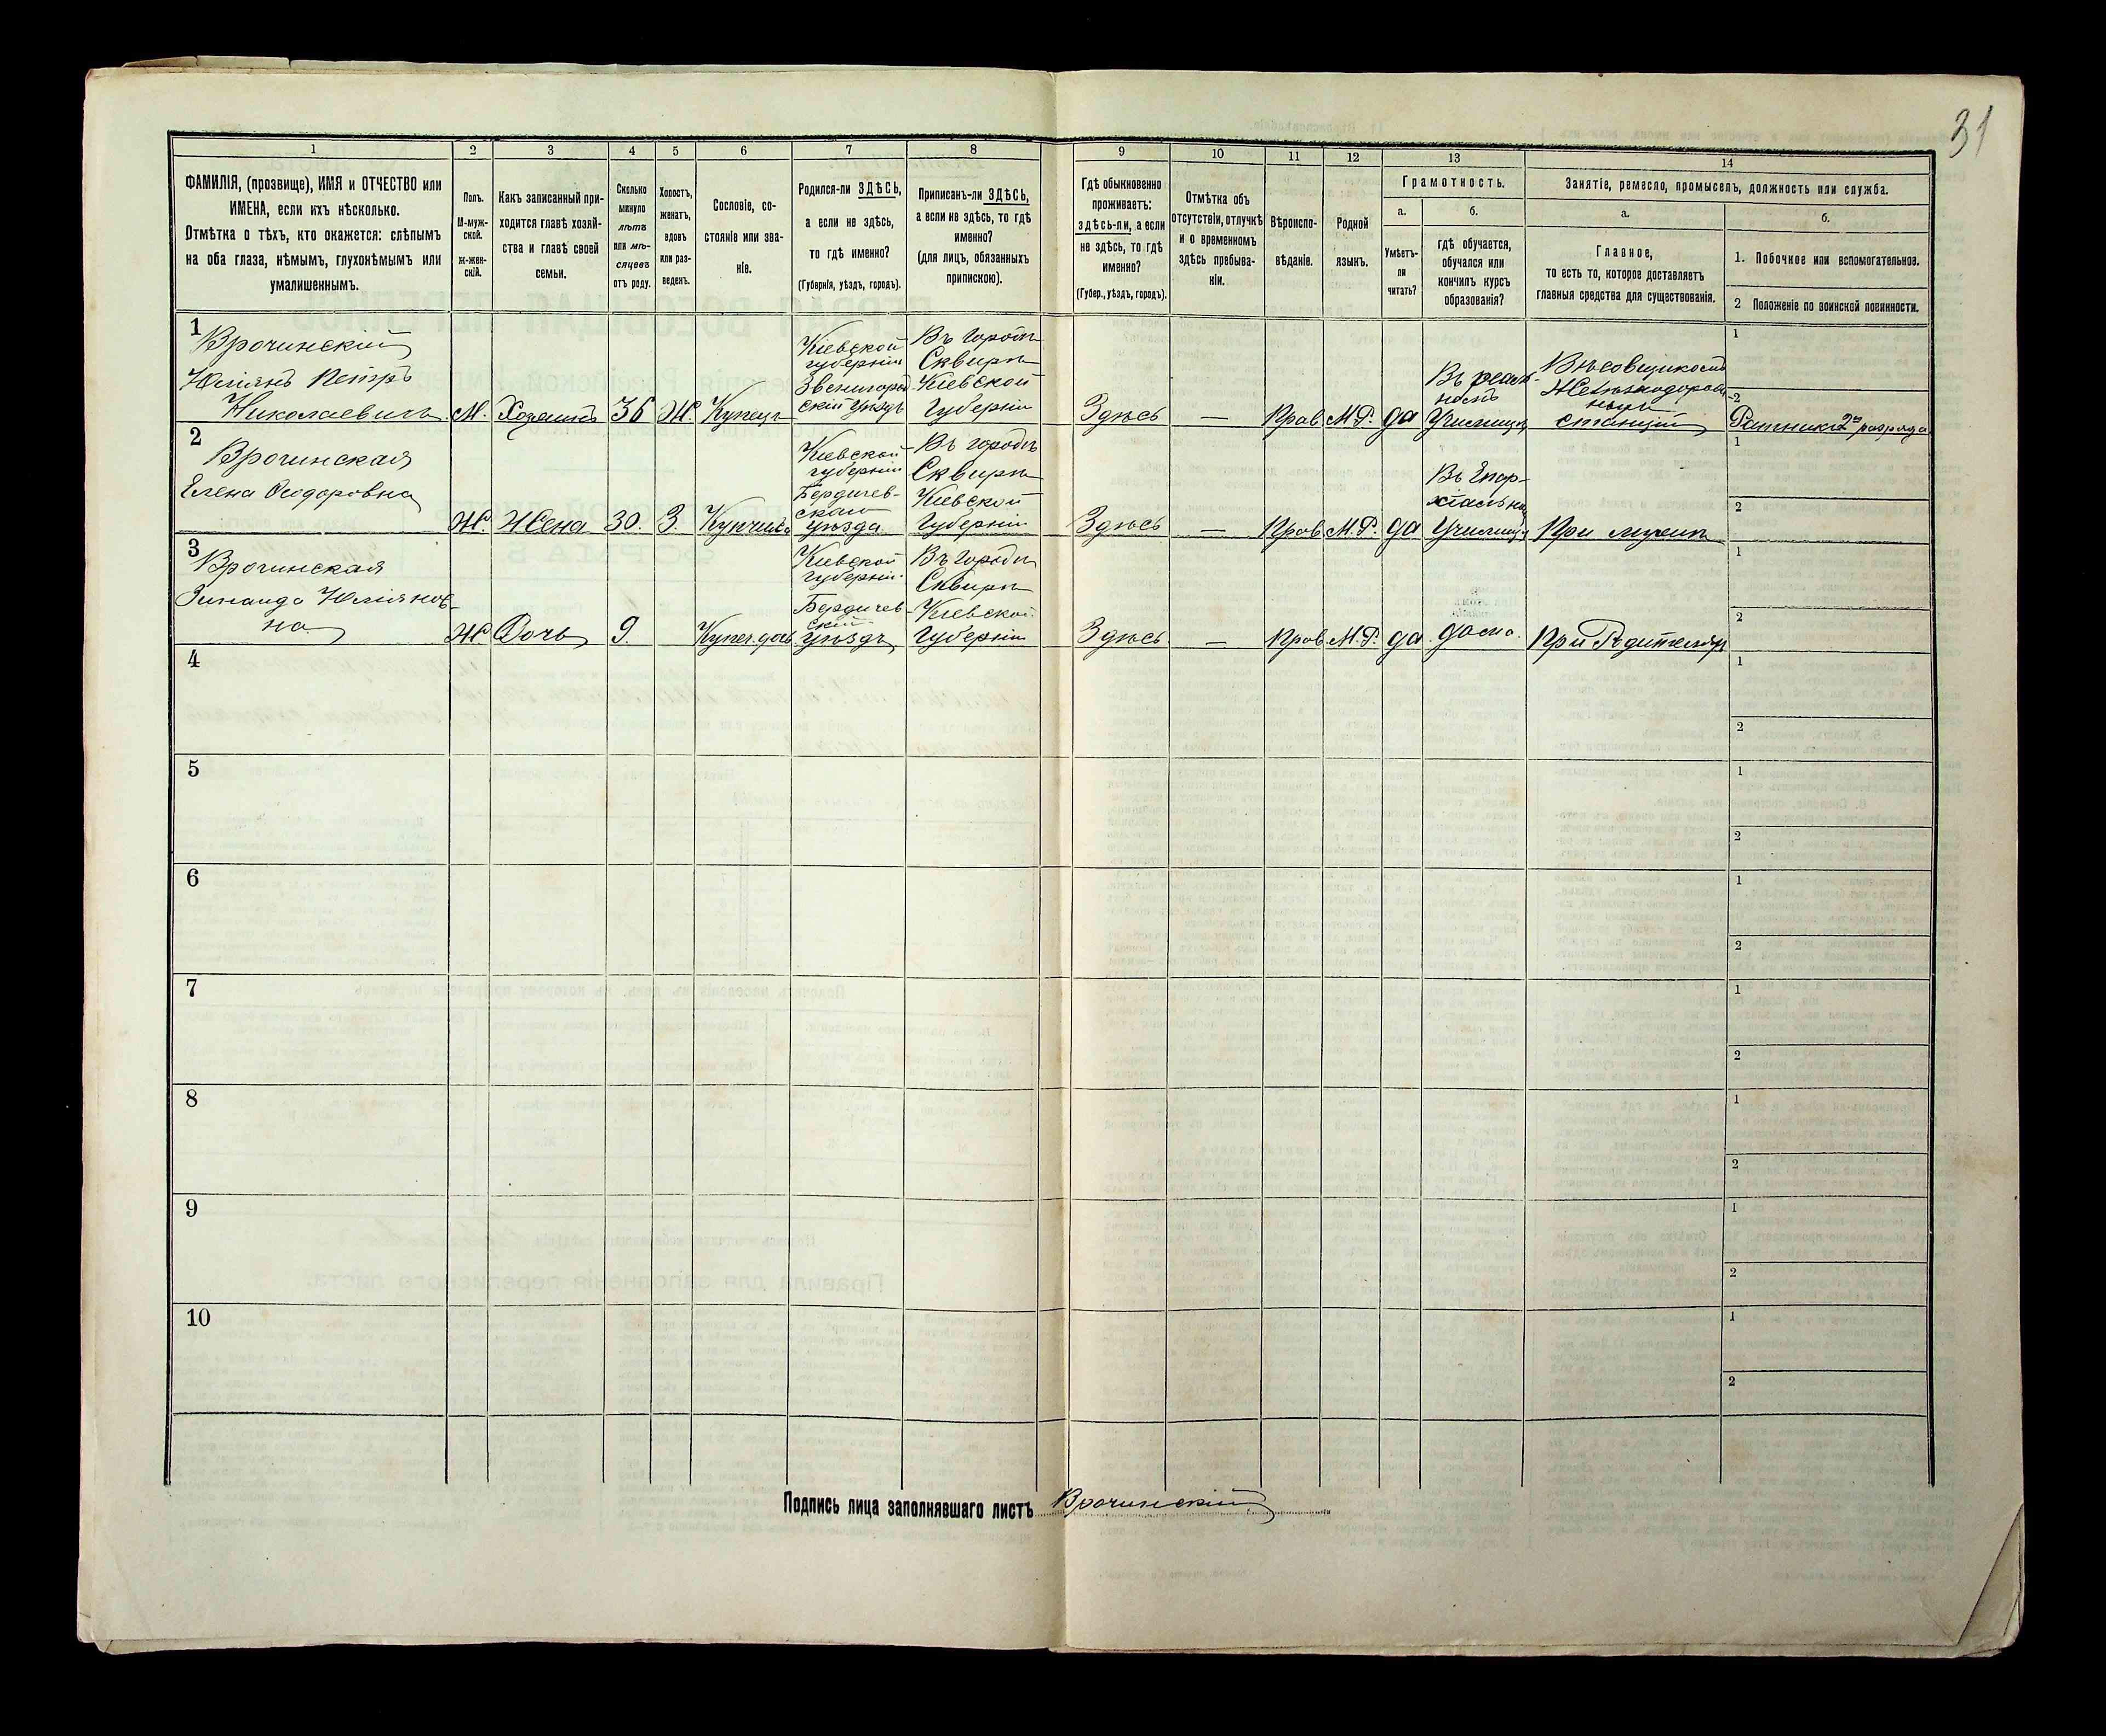 31
1
2
3
4
5
6
7
8
9
10
11
12
13
14
ФАМИЛІЯ, (прозвище), ИМЯ и ОТЧЕСТВО или
ИМЕНА, если ихъ нѣсколько.
Отмѣтка о тѣхъ, кто окажется: слѣпымъ
на оба глаза, нѣмымъ, глухонѣмымъ или
умалишеннымъ.
Полъ.
М-муж-
ской.
Ж-жен-
скій.
Какъ записанный при-
ходится главѣ хозяй-
ства и главѣ своей
семьи.
Сколько
минуло
лѣтъ
или мѣ-
сяцевъ
отъ роду.
Холостъ,
женатъ,
вдовъ
или раз-
веденъ.
Сословіе, со-
стояніе или зва-
ніе.
Родился-ли ЗДѢСЬ,
а если не здѣсь,
то гдѣ именно?
(Губернія, уѣздъ, городъ).
Приписанъ-ли ЗДѢСЬ,
а если не здѣсь, то гдѣ
именно?
(для лицъ, обязанныхъ
припискою).
Гдѣ обыкновенно
проживаетъ:
здѣсь-ли, а если
не здѣсь, то гдѣ
именно?
(Губер., уѣздъ, городъ).
Отмѣтка объ
отсутствіи, отлучкѣ
и о временномъ
здѣсь пребыва-
ніи.
Вѣроиспо-
вѣданіе.
Родной
языкъ.
Грамотность.
а.
Умѣетъ-
ли
читать?
б.
гдѣ обучается,
обучался или
кончилъ курсъ
образованія?
Занятіе, ремесло, промыселъ, должность или служба.
а.
Главное,
то есть то, которое доставляетъ
главныя средства для существованія.
б.
1. Побочное или вспомогательное.
2 Положеніе по воинской повинности.
1
Врочинский
Юліянъ Петръ
Николаевичъ
М.
Хозяинъ
36
Ж.
Купецъ
Кіевской
губерніи
Звенигород-
скій уѣздъ
Въ городѣ
Сквирѣ
Кіевской
Губерніи
Здѣсь
—
Прав.
М.Р.
да
Въ реаль-
номъ
Училищѣ
станціи
1
2
Ратникъ 2го разряда
2
Врочинская
Елена Ѳеодоровна
Ж.
Жена
30.
З.
Купчиха
Кіевской
губерніи
Бердичев-
скаго
уѣзда
Въ городѣ
Сквирѣ
Кіевской
Губерніи
Здѣсь
—
Прав.
М.Р.
да
Въ Епар-
хіальном
Училищѣ
При мужѣ
1
2
3
Врочинская
Зинаида Юліянов-
на
Ж.
Дочь
9.
Купеч. дочь
Кіевской
губерніи.
Бердичев-
скій
уѣздъ
Въ городѣ
Сквирѣ
Кіевской
Губерніи
Здѣсь
—
Прав.
М.Р.
да
дома.
При Родителяхъ
1
2
4
1
2
5
1
2
6
1
2
7
1
2
8
1
2
9
1
2
10
1
2
Подпись лица заполнявшаго листъ Врочинскій